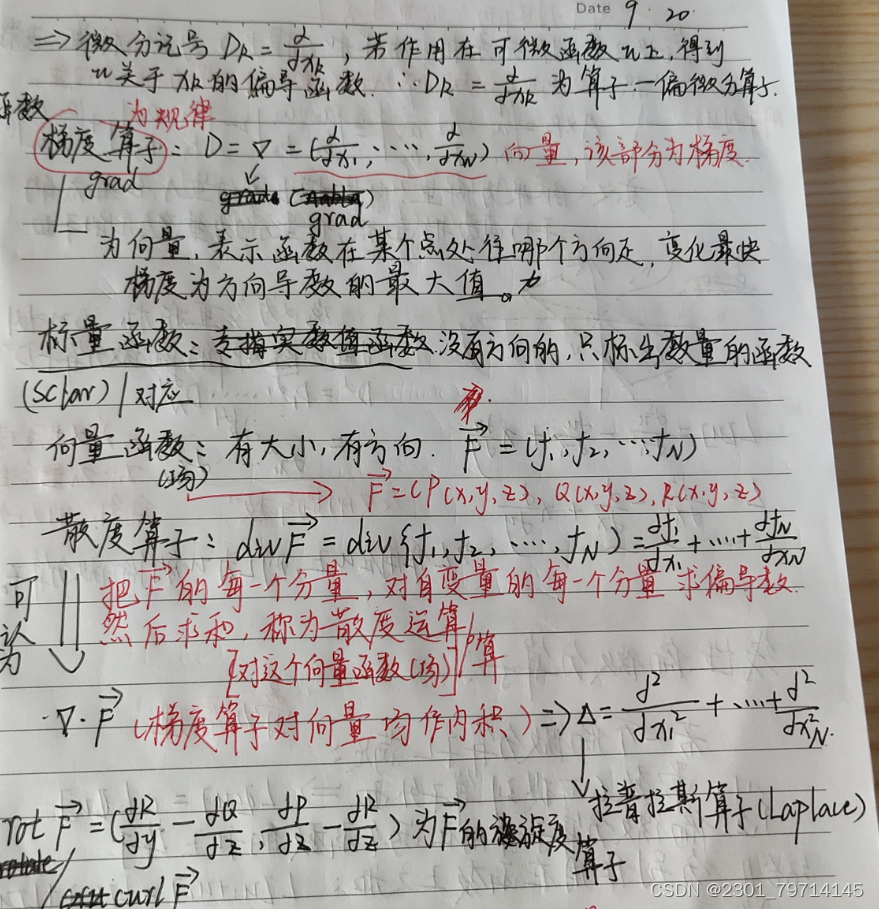 Date 9. 20.
⇒ 微分记号 D_k = ∂/∂x_k, 若作用在可微函数u上, 得到
u关于 x_k 的偏导函数. ∴ D_k = ∂/∂x_k 为算子一偏微分算子.
函数
为规律
梯度算子: D = ∇ = (∂/∂x₁, ⋯, ∂/∂x_N) 向量, 该部分为梯度.
grad
grad
为向量, 表示函数在某个点处往哪个方向走, 变化最快
梯度为方向导数的最大值。
标量函数: 专指实数值函数 没有方向的, 只标出数量的函数
(Sclar) 对应
向量函数: 有大小, 有方向. F⃗ = (f₁, f₂, ⋯, f_N)
(场) → F⃗ = (P(x,y,z), Q(x,y,z), R(x,y,z)
散度算子: div F⃗ = div {f₁, f₂, ⋯, f_N) = ∂f₁/∂x₁ + ⋯ + ∂f_N/∂x_N
可认为
把F⃗的每一个分量, 对自变量的每一个分量求偏导数.
然后求和, 称为散度运算/算
[对这个向量函数(场)]
∇·F⃗ (梯度算子对向量均作内积) ⇒ Δ = ∂²/∂x₁² + ⋯ + ∂²/∂x_N²
拉普拉斯算子(Laplace)
rot F⃗ = (∂R/∂y − ∂Q/∂z, ∂P/∂z − ∂R/∂z) 为F⃗的旋度算子
rotate / curl F⃗
CSDN @2301_79714145